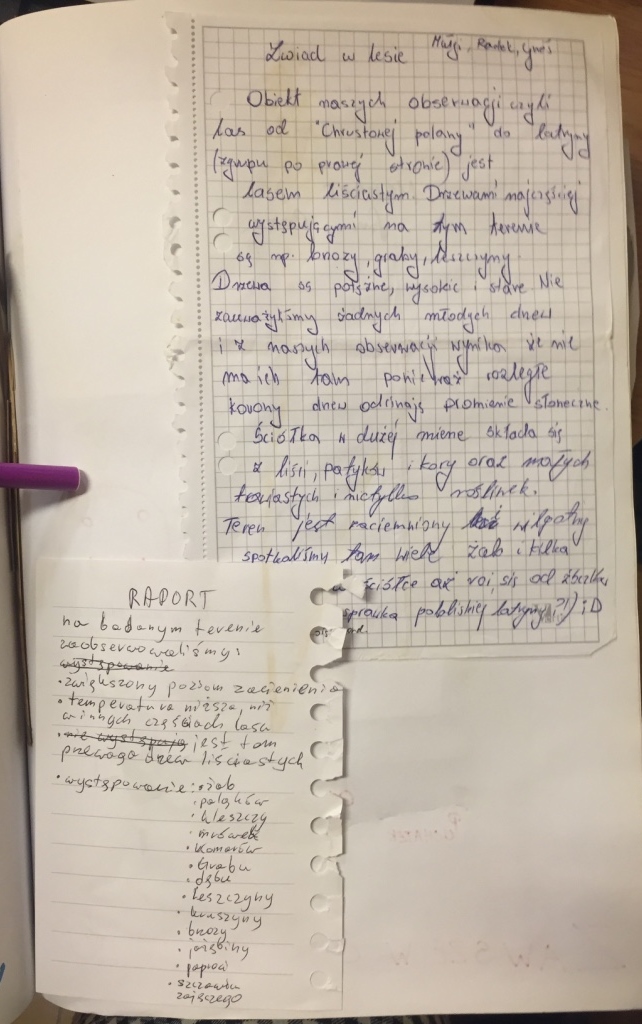 Zwiad w lesie
Małgi, Radek, Gneś
Obiekt naszych obserwacji czyli
las od "Chrustowej polany" do latryny
(zgrupu po prawej stronie) jest
lasem liściastym. Drzewami najczęściej
występującymi na tym terenie
są np. brzozy, graby, leszczyny.
Drzewa są potężne, wysokie i stare Nie
zauważyliśmy żadnych młodych drzew
i z naszych obserwacji wynika że nie
ma ich tam ponieważ rozległe
korony drzew odcinają promienie słoneczne.
Ściółka w dużej mierze składa się
z liści, patyków i kory oraz małych
trawiastych i nietylko roślinek.
Teren jest zaciemniony i wilgotny
spotkaliśmy tam wiele żab i kilka
ściółce aż roi się od
sprawka pobliskiej latryny ?!) ;D
RAPORT
na badanym terenie
zaobserwowaliśmy:
występowanie
• zwiększony poziom zacienienia
• temperatura niższa, niż
w innych częściach lasu
• nie występują jest tam
przewaga drzew liściastych
• występowanie: • żab
• pająków
• kleszczy
• mrówek
• komarów
• Grabu
• dębu
• leszczyny
• kruszyny
• brzozy
• jarzębiny
• paproci
• szczawiu
zajęczego